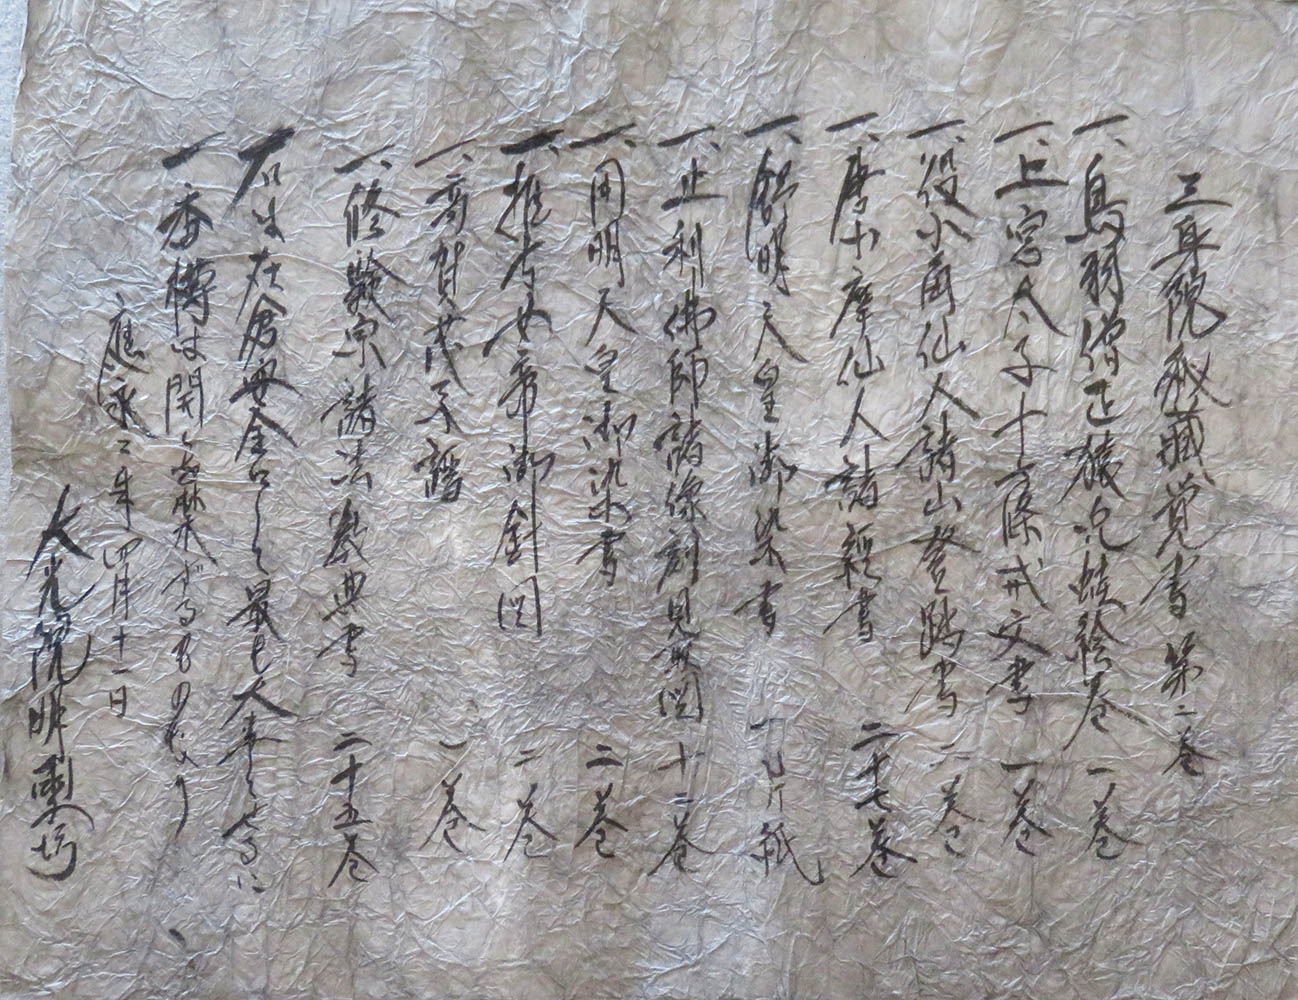 三身院秘蔵覚書 第二巻
一、鳥羽僧正猿児蛙絵巻 一巻
一、上宮太子十七條戒文書 一巻
一、役小角仙人諸山登踏書 一巻
一、唐小摩仙人諸経書 二十七巻
一、舒明天皇御染書 片紙
一、止利佛師諸像刻見取図 十二巻
一、用明天皇御染書 二巻
一、推古女帝御針図 二巻
一、高賀茂系譜 一巻
一、修験宗諸法教典書 二十五巻
右は在倉典全にして最も大事とせるに
一番構は開くを禁ずるものなり
應永二年四月十一日
大光院明 坊